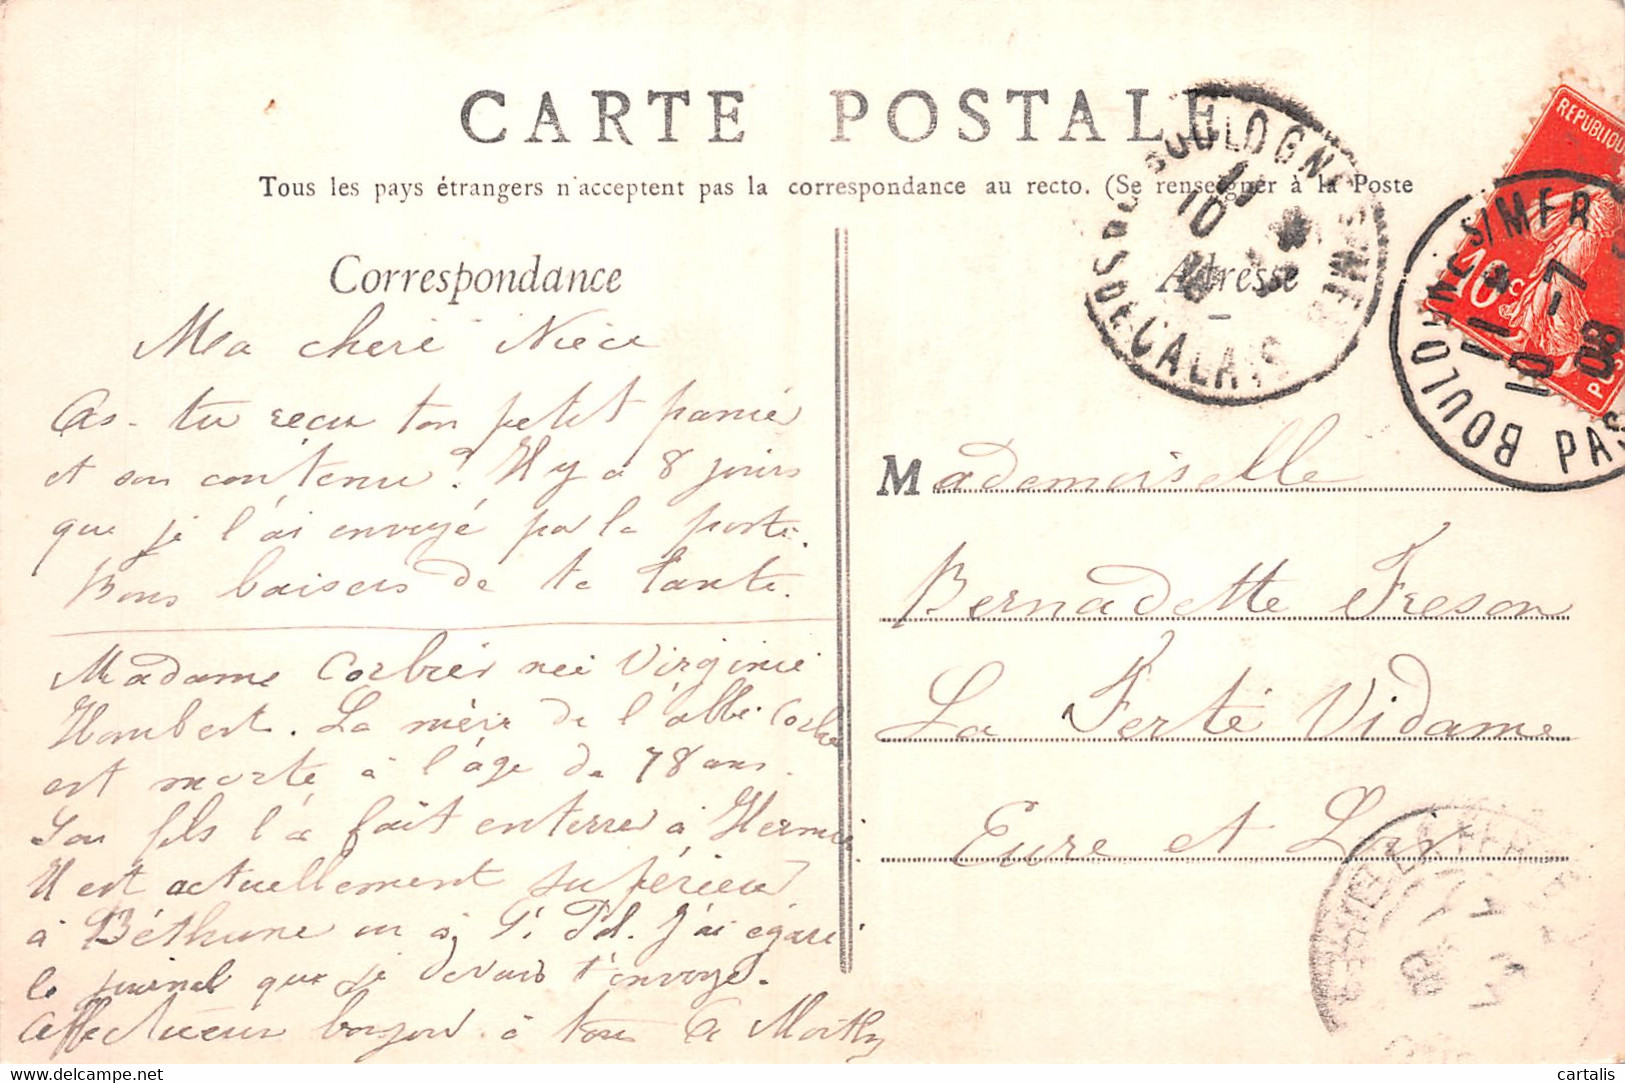 CARTE POSTALE
Tous les pays étrangers n'acceptent pas la correspondance au recto. (Se renseigner à la Poste
Correspondance
Adresse
Ma chere Niece
As-tu recu ton petit panié
et son contenu? Il y a 8 jours
que je l'ai envoyé par la poste.
Bons baisers de ta tante.
Madame Corbier neé Virginie
Hambert. La mère de l'abbé Corbier
est morte à l'âge de 78 ans.
Son fils l'a fait enterre à
Il est actuellement supérieur
à Béthune ou à J'ai égaré
le journal que je devais t'envoyé.
Affectueux bonjour à tous
Mademoiselle
Bernadette Freson
La Ferté Vidame
Eure et Loir
BOULOGNE S MER
PAS DE CALAIS
REPUBLIQU
10c
BOULOGNE S/MER
PAS
11 4
10 -7
08
delcampe.net
cartalis